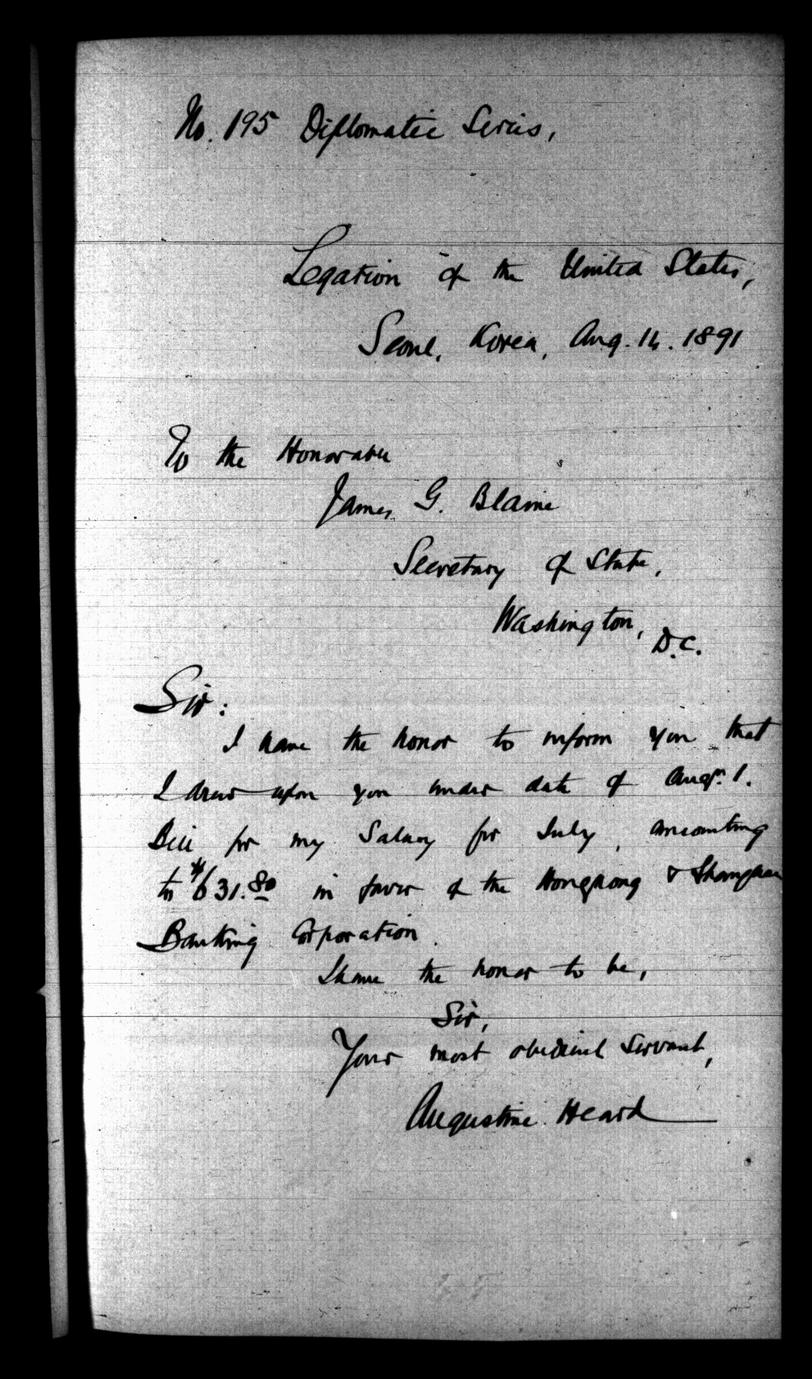 No. 195 Diplomatic Series,
Legation of the United States,
Seoul, Korea, Aug. 14. 1891
To the Honorable
James G. Blaine
Secretary of State,
Washington,
D.C.
Sir:
I have the honor to inform you that
I drew upon you under date of Augt. 1.
Bill for my Salary for July, amounting
to $631.80 in favor of the Hongkong & Shanghai
Banking Corporation.
I have the honor to be,
Sir,
Your most obedient Servant,
Augustine Heard